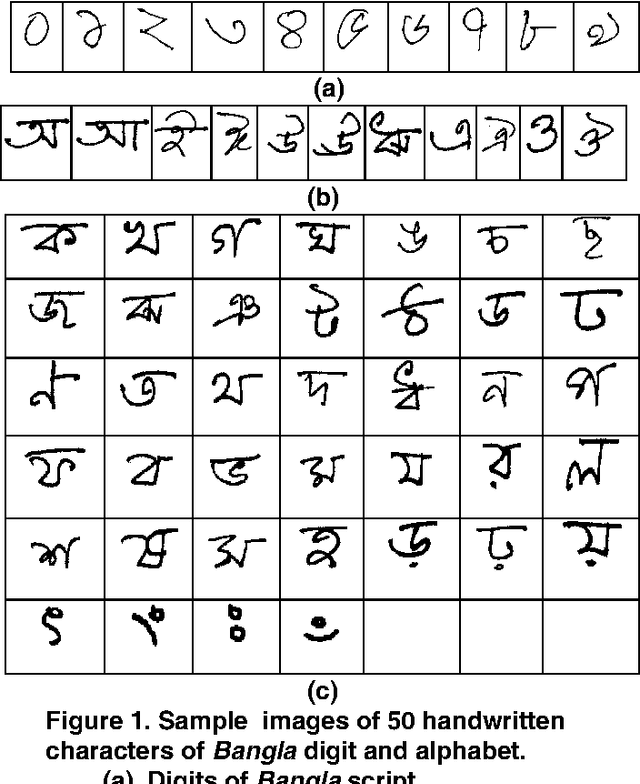 ০ ১ ২ ৩ ৪ ৫ ৬ ৭ ৮ ৯
(a)
অ আ ই ঈ উ ঊ ঋ এ ঐ ও ঔ
(b)
ক খ গ ঘ ঙ চ ছ
জ ঝ ঞ ট ঠ ড ঢ
ণ ত থ দ ধ ন প
ফ ব ভ ম য র ল
শ ষ স হ ড় ঢ় য়
ৎ ং ঃ ঁ
(c)
Figure 1. Sample images of 50 handwritten
characters of Bangla digit and alphabet.
(a) Digits of Bangla script